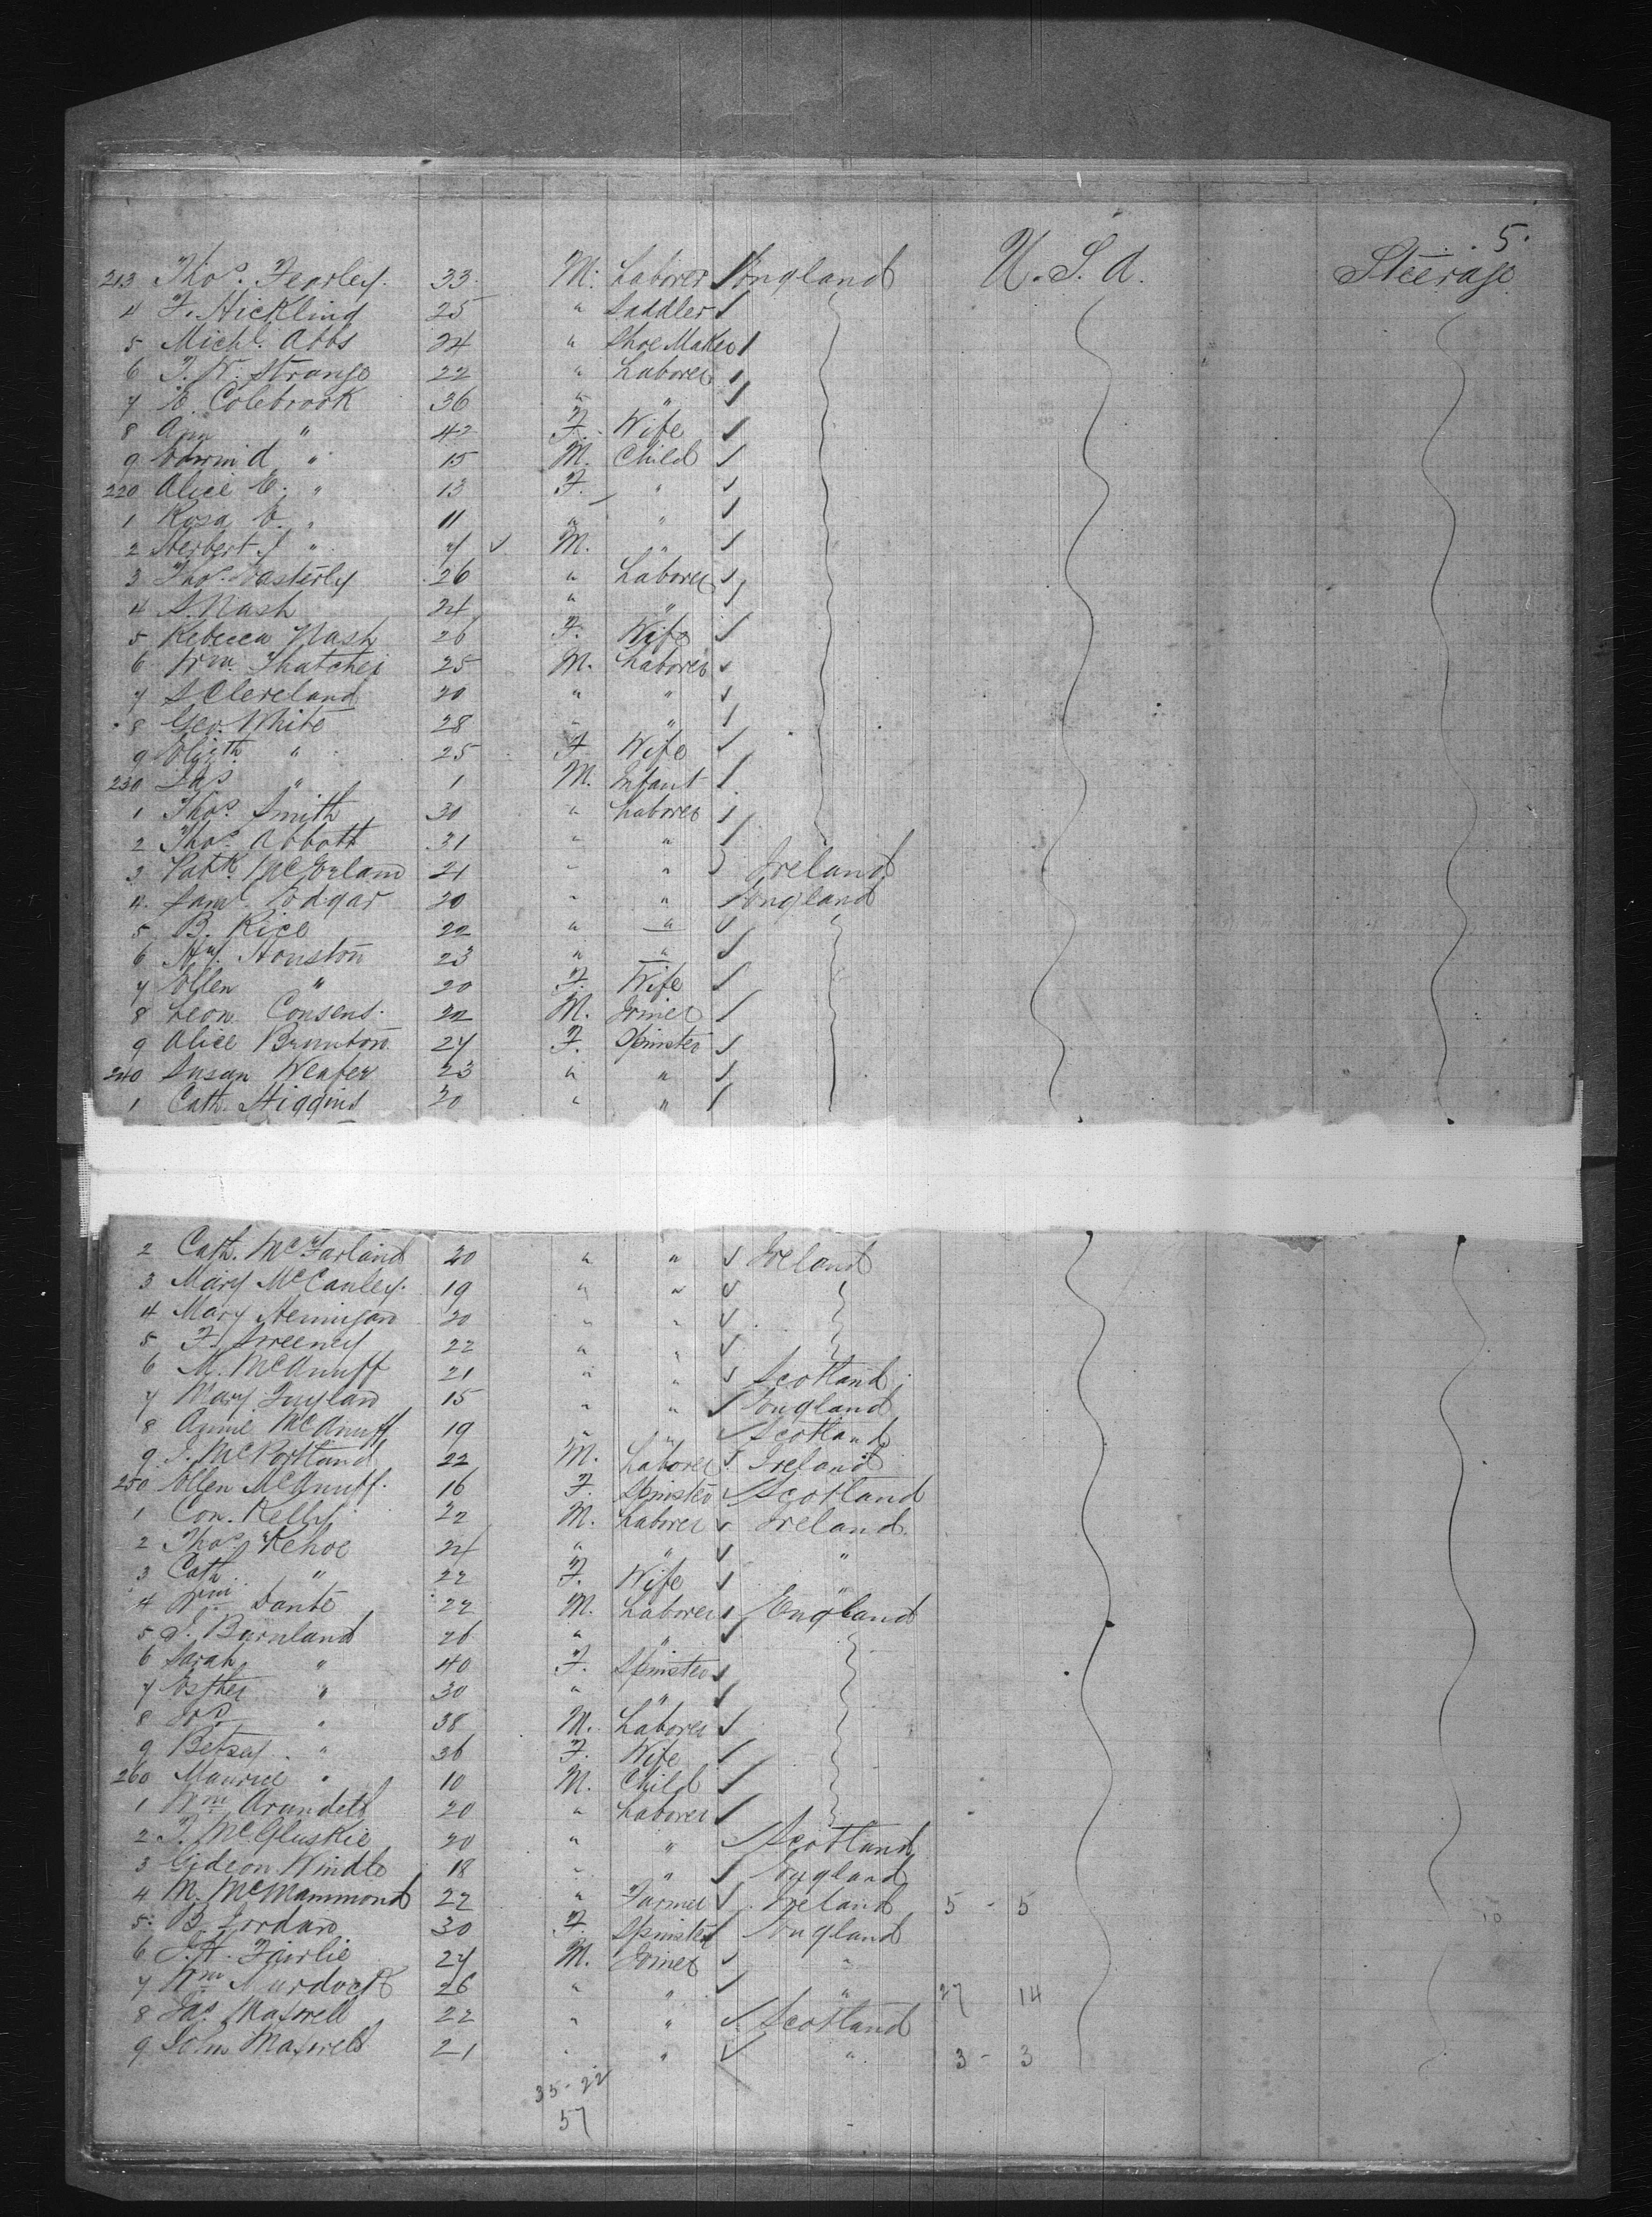 5.
213 Thos. Fearley. 33. M. Laborer England U.S.A. Steerage
4 F. Hickling 25 " Saddler
5 Michl. Abbs 24 " Shoe Maker
6 T. W. Strange 22 " Laborer
7 E. Colebrook 36 " "
8 Ann " 42 F. Wife
9 Edwin d " 15 M. Child
220 Alice E. " 13 F. "
1 Rosa E. " 11 " "
2 Herbert J " 7 M. "
3 Thos. Easterly 26 " Laborer
4 S. Nash 24 " "
5 Rebecca Nash 26 F. Wife
6 Wm. Thatcher 25 M. Laborer
7 S Cleveland 20 " "
8 Geo. White 28 " "
9 Elizth. " 25 F. Wife
230 Jas " 1 M. Infant
1 Thos. Smith 30 " Laborer
2 Thos. Abbott 31 " "
3 Patk. 21 " " Ireland
4 Saml. Edgar 20 " " England
5 B. Rice 22 " "
6 Hy. Houston 23 " "
7 Ellen " 20 F. Wife
8 Leon Consens. 22 M. Joiner
9 Alice Brunton 27 F. Spinster
240 Susan Weafer 23 " "
1 Cath. Higgins 20 " "
2 Cath. McFarland 20 " " Ireland
3 Mary McCauley. 19 " "
4 Mary Hennigan 20 " "
5 F. Sweeney 22 " "
6 M. McAnuff 21 " " Scotland
7 Mary 15 " " England
8 Annie McAnuff 19 " " Scotland
9 J. McPortland 22 M. Laborer Ireland
250 Ellen McAnuff. 16 F. Spinster Scotland
1 Con. Kelly 22 M. Laborer Ireland
2 Thos. Kehoe 24 " " "
3 Cath " 22 F. Wife "
4 Wm Dante 22 M. Laborer England
5 J. Barnland 26 " "
6 Sarah " 40 F. Spinster
7 Esther " 30 " "
8 Jos " 38 M. Laborer
9 Betsey " 36 F. Wife
260 Maurice " 10 M. Child
1 Wm Arundell 20 " Laborer
2 T. McGluskie 20 " " Scotland
3 Gideon Windle 18 " " England
4 M. McMammond 22 " Farmer Ireland 5 - 5 10
5 B. Jordan 30 F. Spinster England
6 J. H. Fairlie 27 M. Joiner "
7 Wm Murdock 26 " " " 27 14
8 Jas. Maxwell 22 " " Scotland
9 John Maxwell 21 " " " 3 - 3
35-22
57